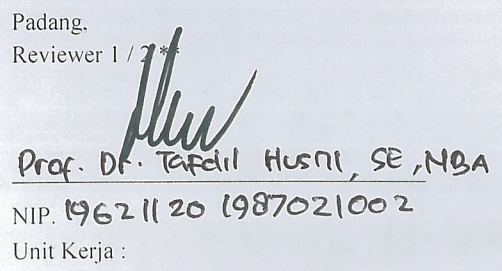 Padang,
Reviewer 1 / 2 **
Prof. Dr. Tafdil Husni, SE, MBA
NIP. 19621120 1987021002
Unit Kerja :